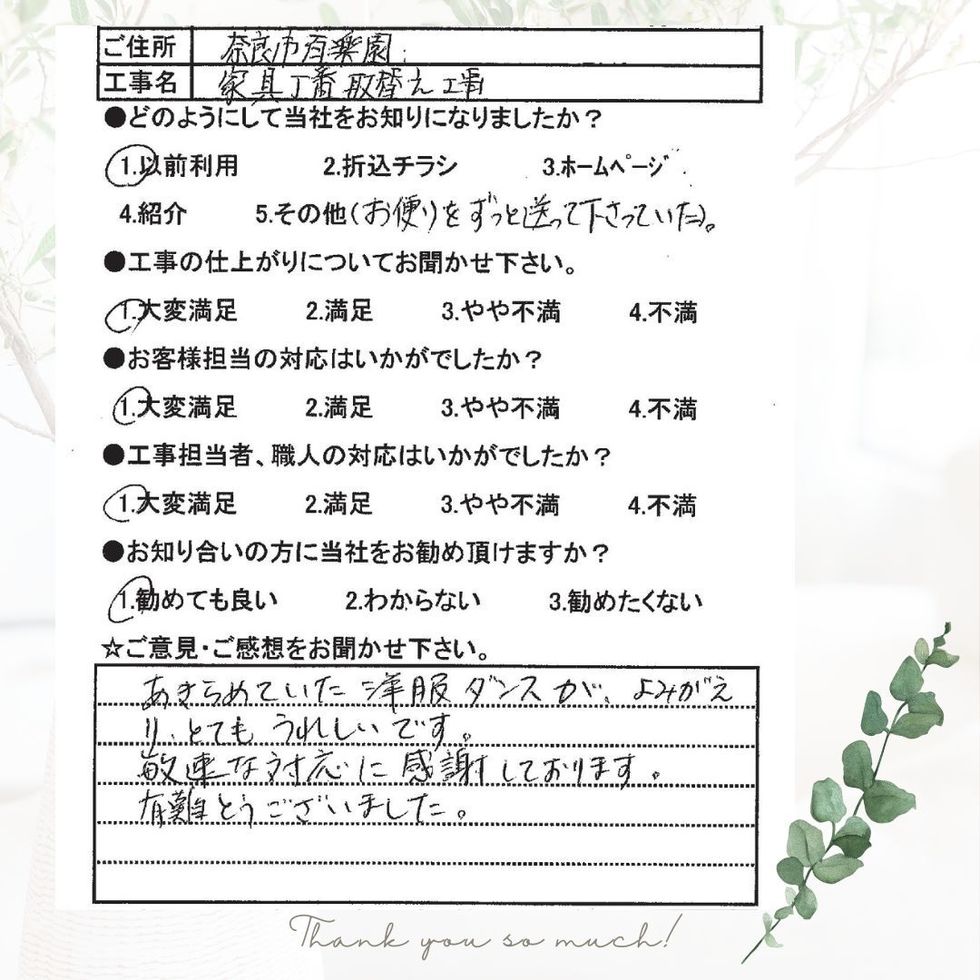 ご住所 奈良市百楽園
工事名 家具丁番取替え工事
●どのようにして当社をお知りになりましたか？
1.以前利用 2.折込チラシ 3.ホームページ
4.紹介 5.その他(お便りをずっと送って下さっていた)。
●工事の仕上がりについてお聞かせ下さい。
1.大変満足 2.満足 3.やや不満 4.不満
●お客様担当の対応はいかがでしたか？
1.大変満足 2.満足 3.やや不満 4.不満
●工事担当者、職人の対応はいかがでしたか？
1.大変満足 2.満足 3.やや不満 4.不満
●お知り合いの方に当社をお勧め頂けますか？
1.勧めても良い 2.わからない 3.勧めたくない
☆ご意見・ご感想をお聞かせ下さい。
あきらめていた洋服ダンスが、よみがえ
り、とてもうれしいです。
敏速な対応に感謝しております。
有難とうございました。
Thank you so much!